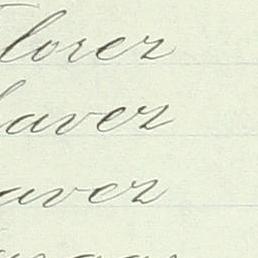 lorez
avez
avez